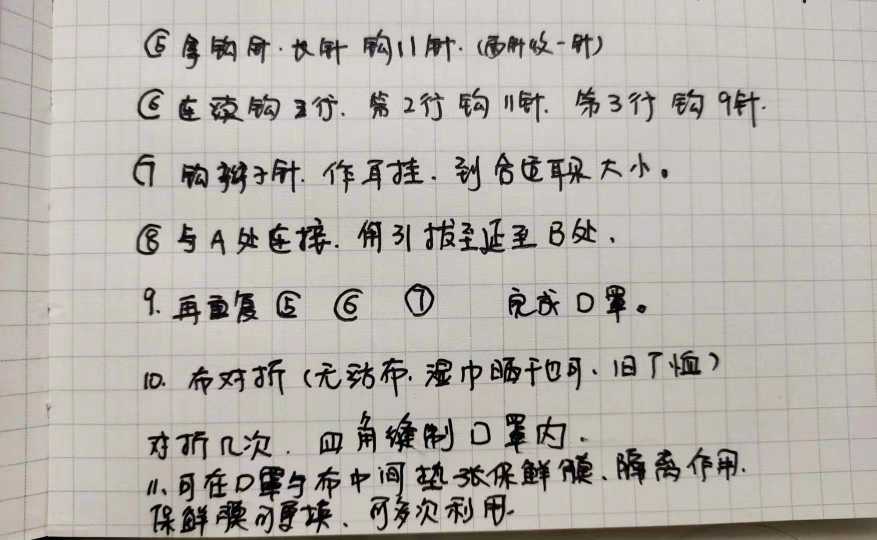 ⑤ 每钩针.长针钩11针.(两针收一针)
⑥ 连续钩3行.第2行钩11针.第3行钩9针.
⑦ 钩辫子针.作耳挂.到合适耳朵大小。
⑧ 与A处连接.用引拔至延至B处.
9. 再重复⑤ ⑥ ⑦ 完成口罩。
10. 布对折(无纺布.湿巾晒干也可、旧T恤)
对折几次.四角缝制口罩内.
11.可在口罩与布中间垫张保鲜膜、隔离作用.
保鲜膜可更换、可多次利用.